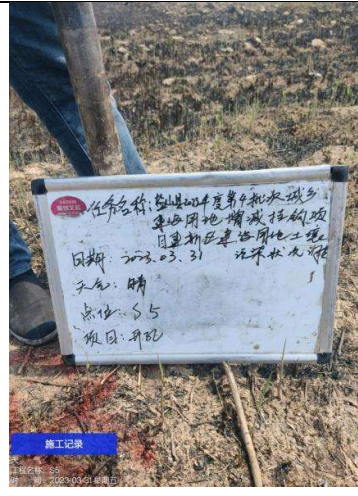 任务名称: 萧山县2023年度第4批次城乡
建设用地增减挂钩项
目建新区建设用地土壤
日期: 2023.03.31 污染状况调查
天气: 晴
点位: S5
项目: 开孔
施工记录
工程名称: S5
时 间: 2023-03-31 星期五